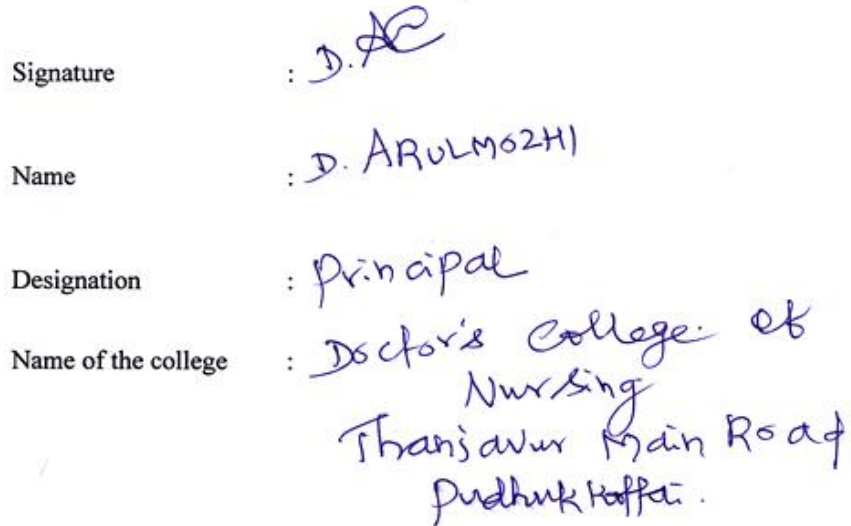 Signature : D. A
Name : D. ARULMOZHI
Designation : Principal
Name of the college : Doctor's College of
Nursing
Thanjavur Main Road
Pudhukkottai.